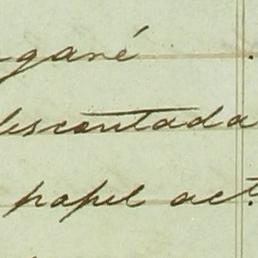 gané
descontada
papel act.